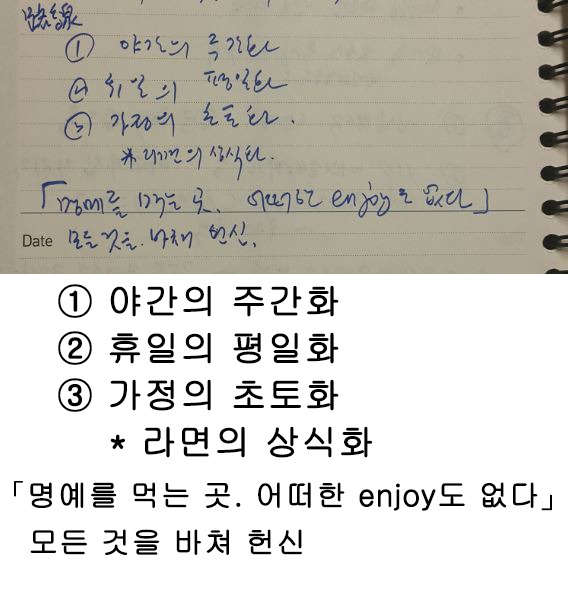 ① 야간의 주간화
② 휴일의 평일화
③ 가정의 초토화.
* 라면의 상식화.
「명예를 먹는 곳. 어떠한 enjoy도 없다」
Date 모든 것을 바쳐 헌신.
① 야간의 주간화
② 휴일의 평일화
③ 가정의 초토화
* 라면의 상식화
「명예를 먹는 곳. 어떠한 enjoy도 없다」
모든 것을 바쳐 헌신